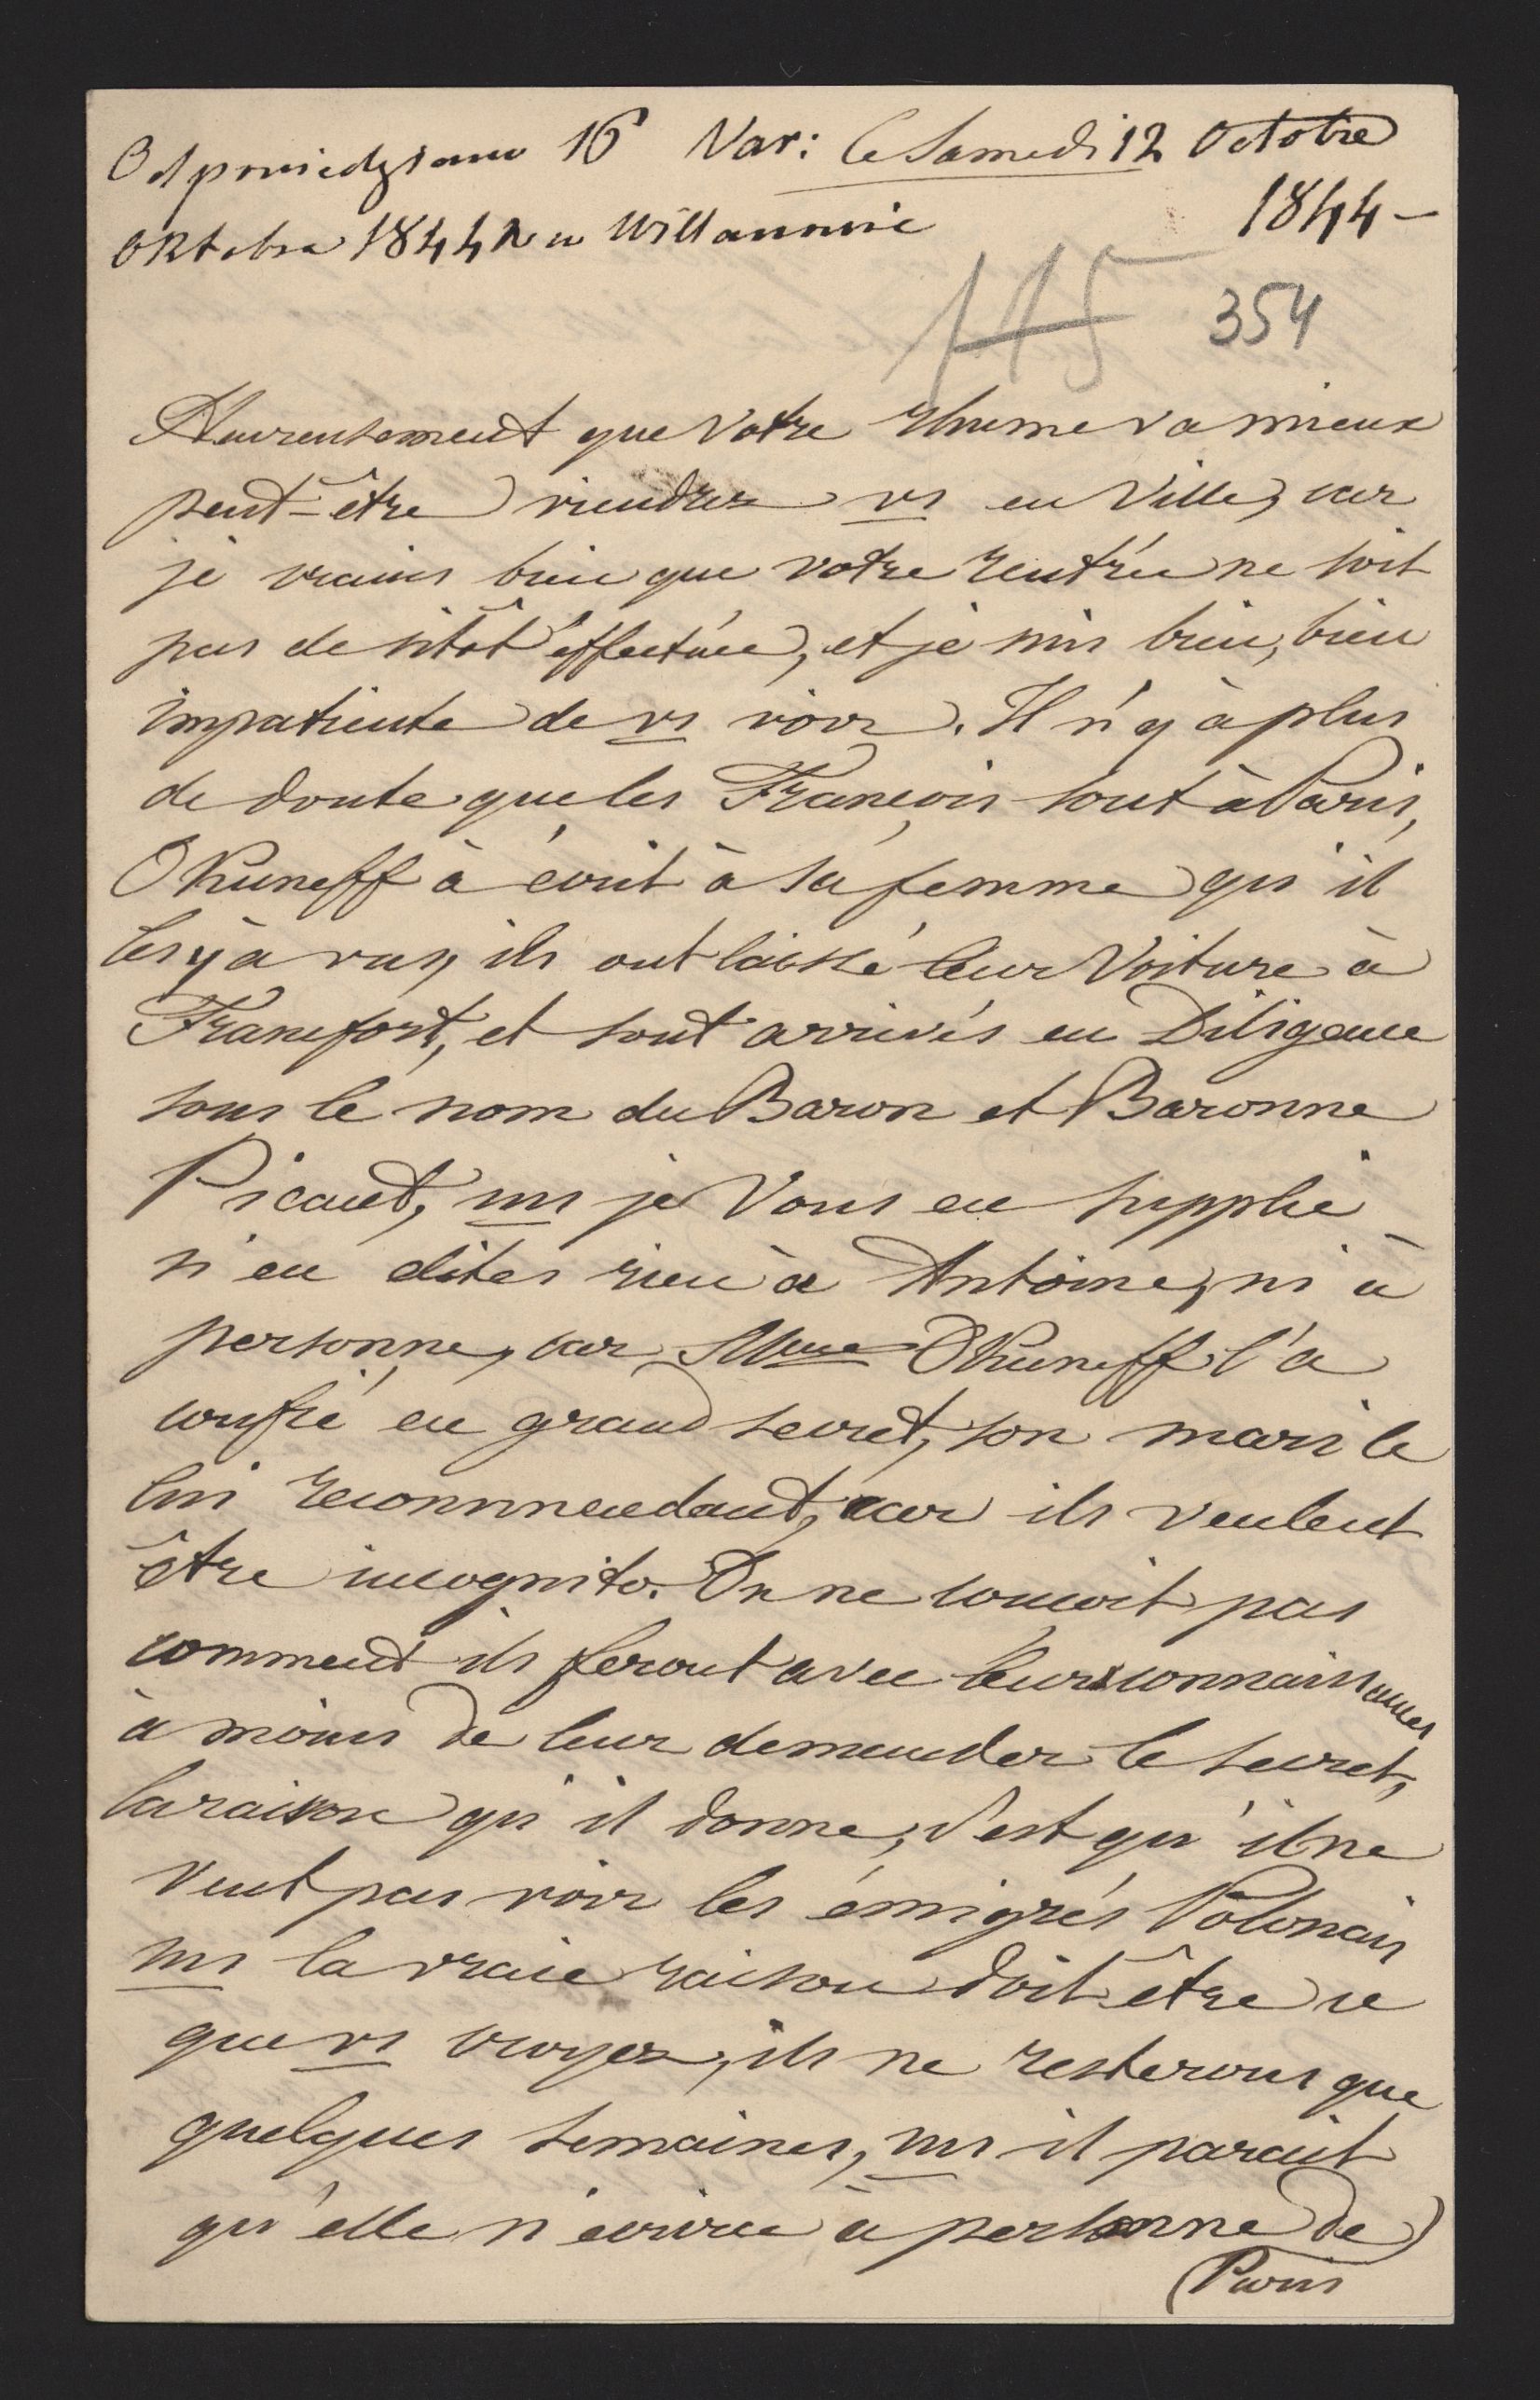 Odpowiedziano 16 Var: Ce Samedi 12 Octobre
Oktobra 1844 R w Willanowie 1844 –
115 354
Heureusement que Votre rhume va mieux
peut-être viendrez vs en Ville, car
je crains bien que votre rentrée ne soit
pas de sitôt éffectuée, et je suis bien, bien
impatiente de vs voir. Il n'y à plus
de doute que les François sont à Paris,
Okuneff à écrit à sa femme qu'il
les y à vus, ils ont laissé leur Voiture à
Francfort, et sont arrivés en Diligence
sous le nom du Baron et Baronne
Picaut, ms je Vous en supplie
n'en dites rien à Antoine, ni à
personne, car Mme Okuneff l'a
confié en grand secret, son mari le
lui recommendant, car ils veulent
être incognito. On ne conçoit pas
comment ils feront avec leurs connaissances
à moins de leur demander le secret,
la raison qu'il donne, c'est qu'il ne
veut pas voir les émigrés Polonais
ms la vraie raison doit être ce
que vs croyez, ils ne resterons que
quelques semaines, ms il parait
qu'elle n'écrira à personne de
Paris